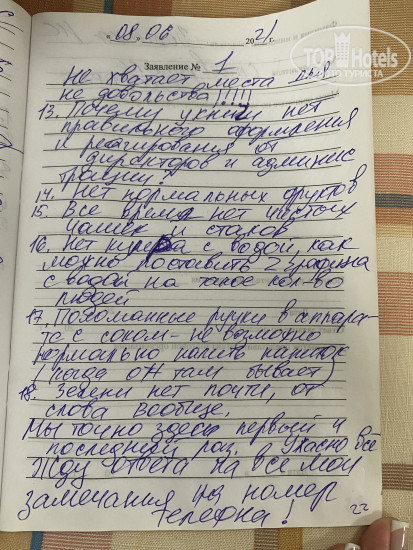 „08.06 2021
TOP Hotels
Заявление № 1
Не хватает места для
не довольства!!!!
13. Почему у книги нет
правильного оформления
и реагирования от
директоров и админис
трации?
14. Нет нормальных фруктов
15. Все время нет чистых
чашек и стаков
16. Нет кулера с водой, как
можно поставить 2 графина
с водой на такое кол-во
людей
17. Поломанные ручки в аппара-
те с соком - не возможно
нормально налить напиток
(когда он там бывает)
18. Зелени нет почти, от
слова вообще.
Мы точно здесь первый и
последний раз. Ужасно всё
Жду ответа на все мои
замечания на номер
телефона!
22